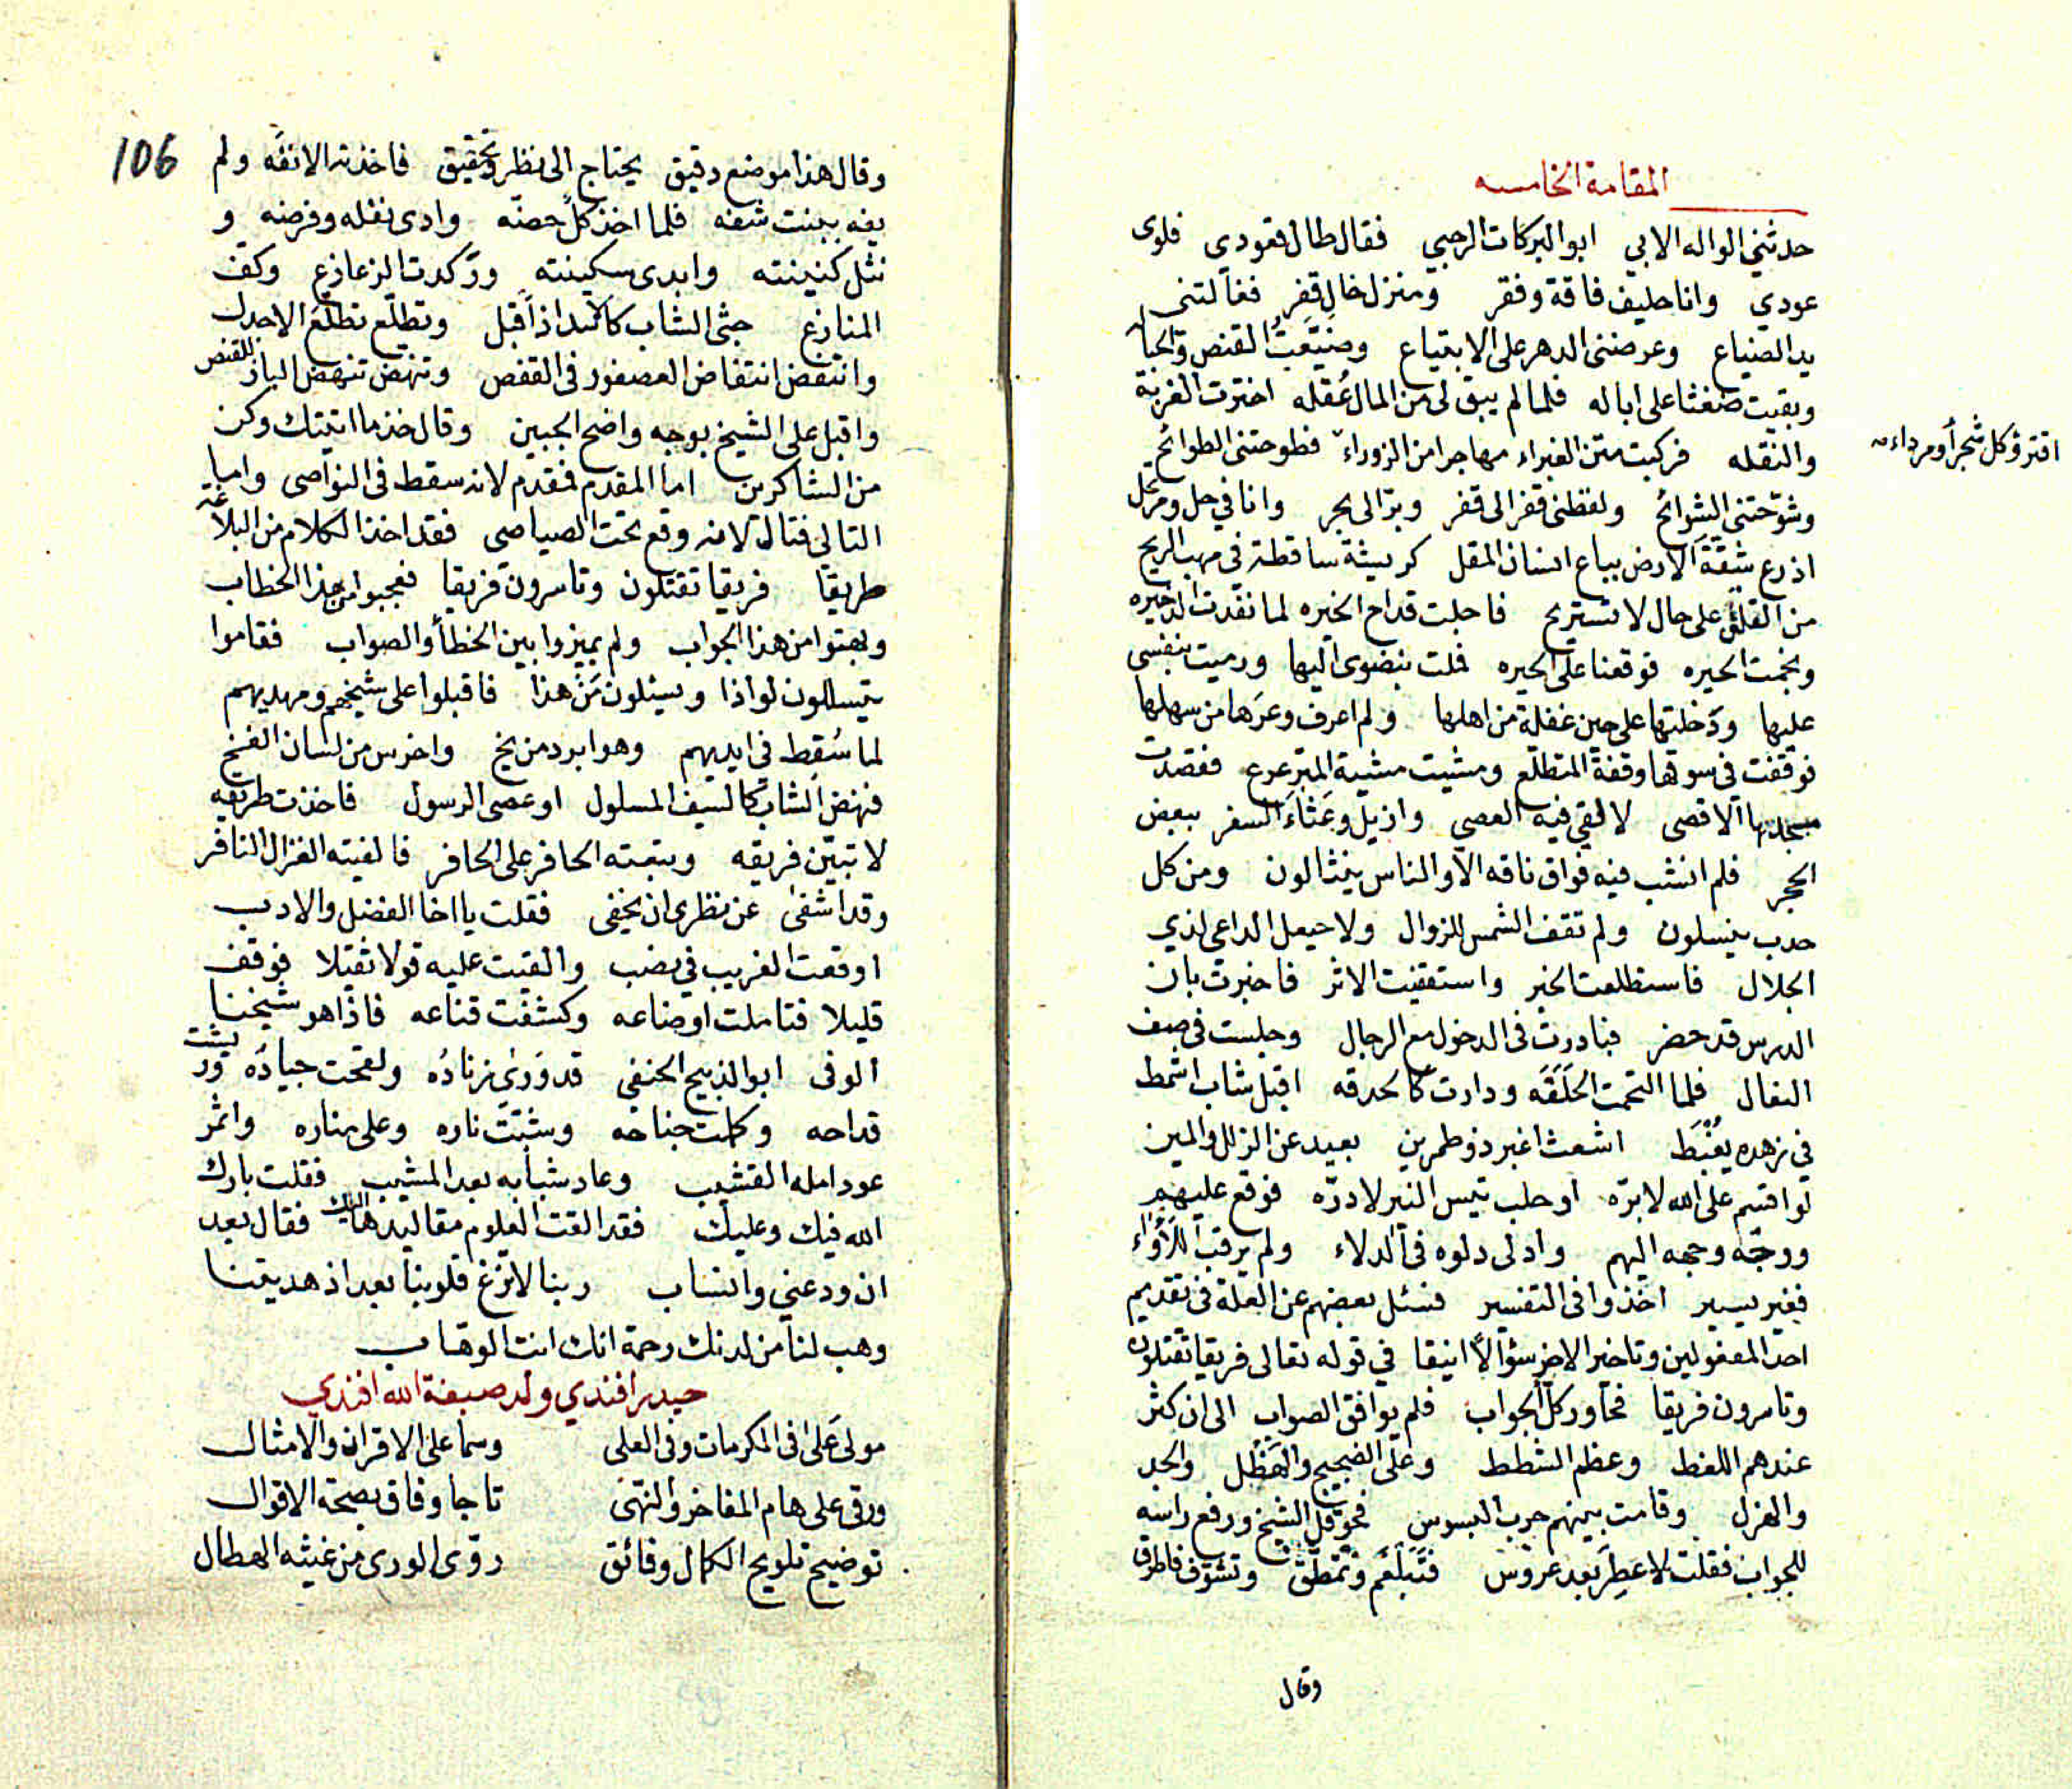 المقامة الخامسه
حدثني الواله الابي ابو البركات الرحبي فقال طال قعودي فلوى
عودي وانا حليف فاقة وفقر ومنزل خال قفر فغالتنى
يد الضياع وعرضنى الدهر على الابتياع وضيّعتُ القنص والحباله
وبقيت ضغثا على اباله فلما لم يبق لى من المال عُقله اخترت الغربة
والنقله فركبت متن الغبراء مهاجرا من الزوراء فطوحتنى الطوائح
اقترو كل شجرأ ومرداء
وشوّحتنى الشوائح ولفظنى قفر الى قفر وبرّ الى بحر وانا في حل ومرتحل
اذرع شقّة الارض بباع انسان المقل كريشة ساقطة فى مهب الريح
من القلق على حال لا تستريح فاجلت قداح الخيره لما نفدت الذخيره
ونجمت الحيره فوقعنا على الحيره فملت بنضوى اليها ورميت بنفسى
عليها ودخلتها على حين غفلة من اهلها ولم اعرف وعرها من سهلها
فوقفت في سوقها وقفة المتطلّع ومشيت مشية المترعرع فقصدت
مسجدها الاقصى لالقي فيه العصي وازيل وعثاء السفر ببعض
الحجر فلم انشب فيه فواق ناقه الا والناس ينثالون ومن كل
حدب ينسلون ولم تقف الشمس للزوال ولا حيعل الداعى لذي
الجلال فاستطلعت الخبر واستقفيت الاثر فاخبرت بان
الدرس قد حضر فبادرت فى الدخول مع الرجال وجلست فى صف
النعال فلما التحمت الحلَقَه ودارت كالحدقه اقبل شاب اشمط
في زهده يغْبَط اشعث اغبر ذو طمرين بعيد عن الزلل والمين
لو اقسم على الله لابرّه او حلب تيس النبر لادرّه فوقع عليهم
ووجّه وجهه اليهم وادلى دلوه فى الدلاء ولم يرقب اللأواء
فغير يسير اخذوا فى التفسير فسئل بعضهم عن العلة فى تقديم
احد المفعولين وتاخير الاخر سؤالاً انيقا في قوله تعالى فريقا تقتلون
وتاسرون فريقا فحاور كلّ الجواب فلم يوافق الصواب الى ان كثر
عندهم اللغط وعظم الشطط وعلى الضجيج والجد
والهزل وقامت بينهم حرب البسوس فحوقل الشيخ ورفع راسه
للجواب فقلت لا عطر بعد عروس فتبلّغم وتمطّق وتشوّف فاطرق
وقال
106
وقال هذا موضع دقيق يحتاج الى نظر وتحقيق فاخذته الانفه ولم
يفه ببنت شفه فلما اخذ كلّ حصته وادى نفله وفرضه و
نثل كنينته وابدى سكينته وركدت الزعازع وكف
المنازع جثى الشاب كالاسد اذا اقبل وتطلّع تطلّع الاجدل
وانتفض انتفاض العصفور فى القفص وتنهض تنهّض الباز للقنص
واقبل على الشيخ بوجه واضح الجبين وقال خذ ما اتيتك وكن
من الشاكرين اما المقدم فمقدم لانه سقط فى النواصى واما
التالى فتال لانه وقع تحت الصياصى فقد اخذ الكلام من البلاغة
طريقا فريقا تقتلون وتاسرون فريقا فعجبوا من هذا الخطاب
وبهتوا من هذا الجواب ولم يميزوا بين الخطأ والصواب فقاموا
يتسللون لواذا ويسئلون مَن هذا فاقبلوا على شيخهم ومهديهم
لما سُقِط فى ايديهم وهو ابرد من يخ واخرس من لسان الفخ
فنهض الشاب كالسيف المسلول او عصى الرسول فاخذت طريقه
لاتبيّن فريقه وتبعته الحافر على الحافر فالفيته الغزال النافر
وقد اشفى عن نظرى ان يخفى فقلت يا اخا الفضل والادب
اوقعت الغريب في نصب والقيت عليه قولا ثقيلا فوقف
قليلا فتاملت اوضاعه وكشفت قناعه فاذا هو شيخنا
الوفى ابو الذبيح الحنفي قد وَرىٰ زنادُه ولقحت جيادُه وريشت
قداحه وكلمت جناحه وشبّت ناره وعلى مناره واثمر
عود امله القشيب وعاد شبابه بعد المشيب فقلت بارك
الله فيك وعليك فقد القت العلوم مقاليدها اليك فقال بعد
ان ودعنى وانساب ربنا لا تزغ قلوبنا بعد اذ هديتنا
وهب لنا من لدنك رحمة انك انت الوهاب
حيدر افندي ولد صبغة الله افندي
مولى عَلى فى المكرمات وفى العلى وسما على الاقران والامثال
ورقى على هام المفاخر والنهى تاجا وفاق بصحة الاقوال
توضيح تلويح الكمال وفائق روّى الورى من غيثه الهطال